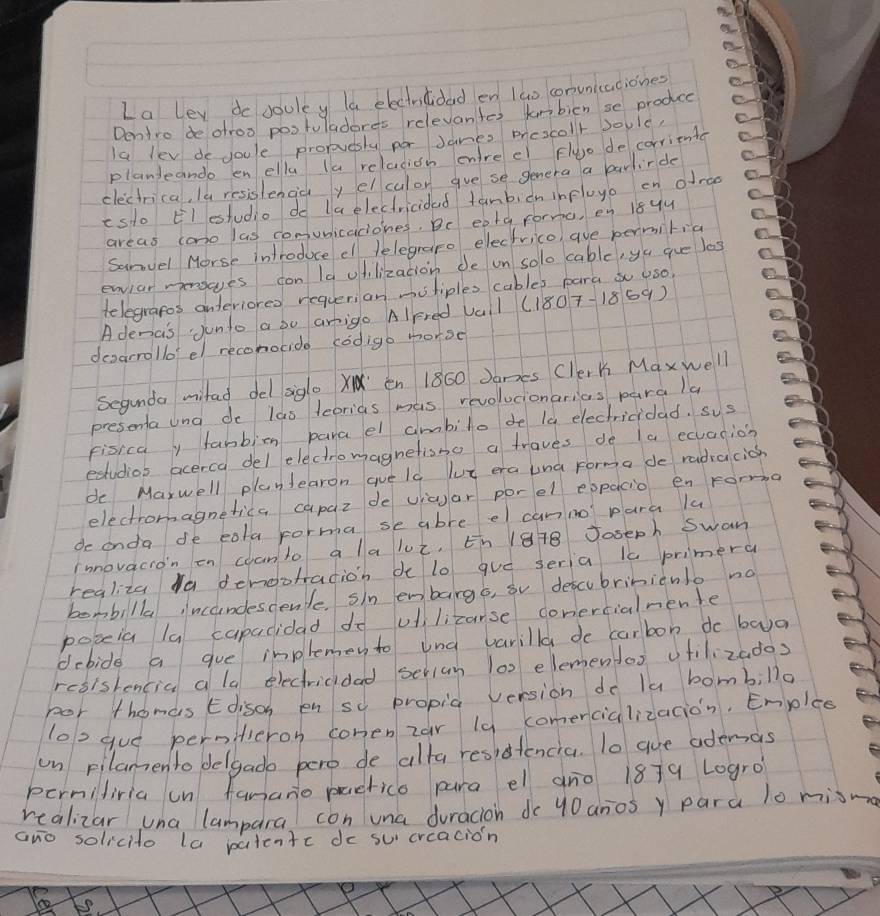 La ley de Joule y la electricidad en las comunicaciones
Dentro de otros postuladores relevantes tambien se produce
la ley de Joule propuesta por James Prescott Joule,
planteando en ella la relación entre el Flujo de corriente
eléctrica, la resistencia y el calor que se genera a partir de
esto El estudio de la electricidad tambien influyo en otras
areas como las comunicaciones. De esta forma, en 1844
Samuel Morse introduce el telegrafo electrico, que permitia
enviar mensajes con la utilización de un solo cable, ya que los
telegrafos anteriores requerian mútiples cables para su uso.
Ademas junto a su amigo Alfred Vail (1807-1859)
desarrollo el reconocido código morse
Segunda mitad del siglo XIX en 1860 James Clerk Maxwell
presenta una de las teorias mas revolucionarias para la
fisica y tambien para el ambito de la electricidad. sus
estudios acerca del electromagnetismo a traves de la ecuación
de Maxwell plantearon que la luz era una forma de radiación
electromagnetica capaz de viajar por el espacio en forma
de onda de esta forma se abre el camino para la
innovación en cuanto a la luz. En 1878 Joseph Swan
realiza la demostración de lo que seria la primera
bombilla incandescente. sin embargo, su descubrimiento no
poseia la capacidad de utilizarse comercialmente
debido a que implemento una varilla de carbon de baja
resistencia a la electricidad serian los elementos utilizados
por thomas Edison en su propia version de la bombilla
los que permitieron comenzar la comercialización. Empleo
un filamento delgado pero de alta resistencia. lo que ademas
permitiria un tamaño practico para el año 1879 Logró
realizar una lampara con una duracion de 40 años y para lo mismo
año solicito la patente de su creación